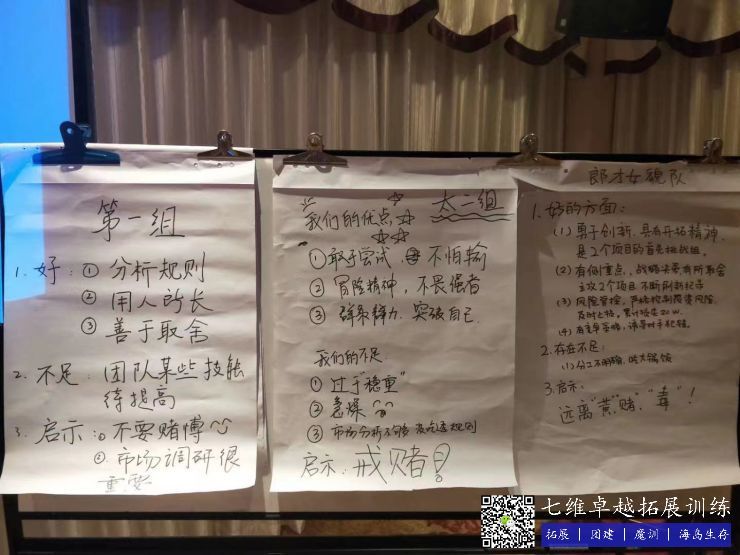 第一组
1. 好: ① 分析规则
② 用人所长
③ 善于取舍
2. 不足: 团队某些技能
待提高
3. 启示: ① 不要赌博
② 市场调研很
重要
太二组
我们的优点
① 敢于尝试, 不怕输
② 冒险精神, 不畏强者
③ 群策群力, 突破自己
我们的不足
① 过于"稳重"
② 急燥
③ 市场分析不够 没吃透规则
启示: 戒赌!
郎才女貌队
1. 好的方面:
(1) 勇于创新, 具有开拓精神,
是2个项目的首先挑战组.
(2) 有侧重点, 战略决策有所取舍
主攻2个项目 不断刷新纪录
(3) 风险管控, 严格控制
及时止损. 累计 20W.
(4) 有竞争策略, 诱导对手犯错.
2. 存在不足:
(1) 分工不明确, 吃大锅饭
3. 启示:
远离"黄""赌""毒"!
七维卓越拓展训练
拓展 | 团建 | 魔训 | 海岛生存